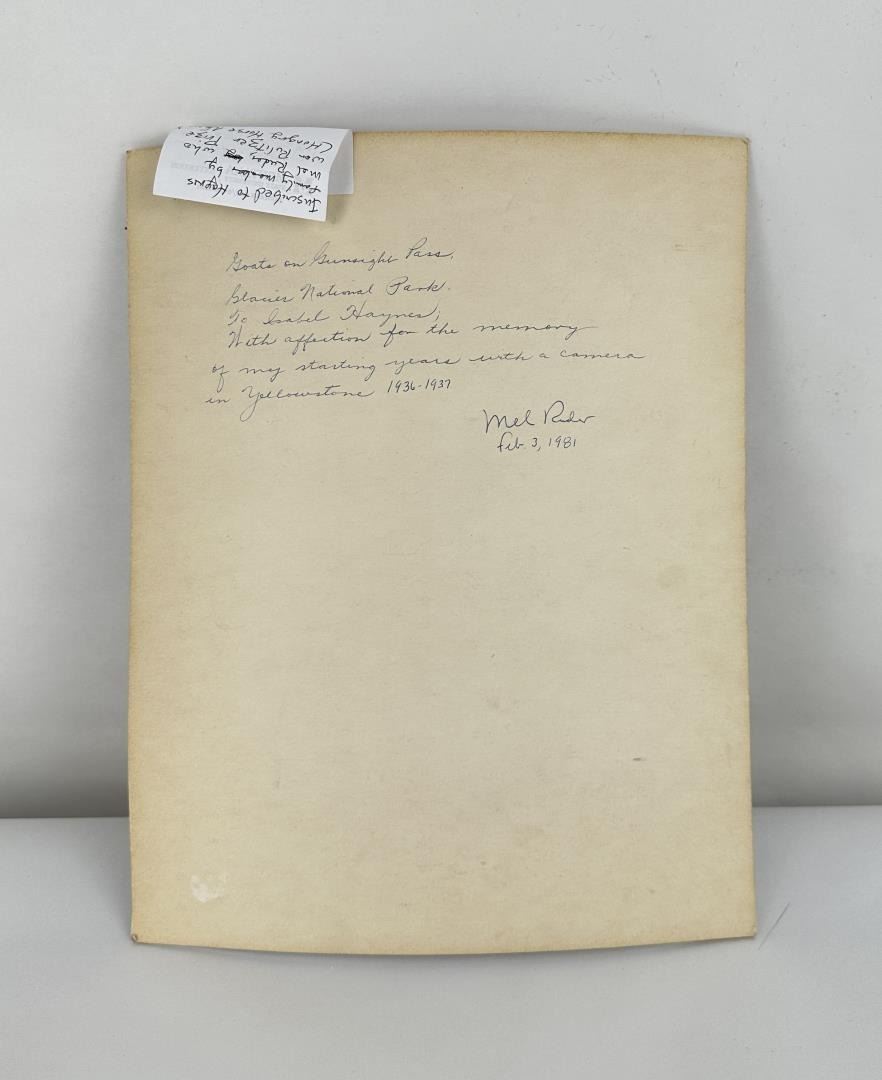 Inscribed to Haynes
family member by
Mel Ruder, who
won Pulitzer Prize
(Hungry Horse
Goats on Gunsight Pass,
Glacier National Park.
To Isabel Haynes;
With affection for the memory
of my starting years with a camera
in Yellowstone 1936-1937
Mel Ruder
Feb. 3, 1981